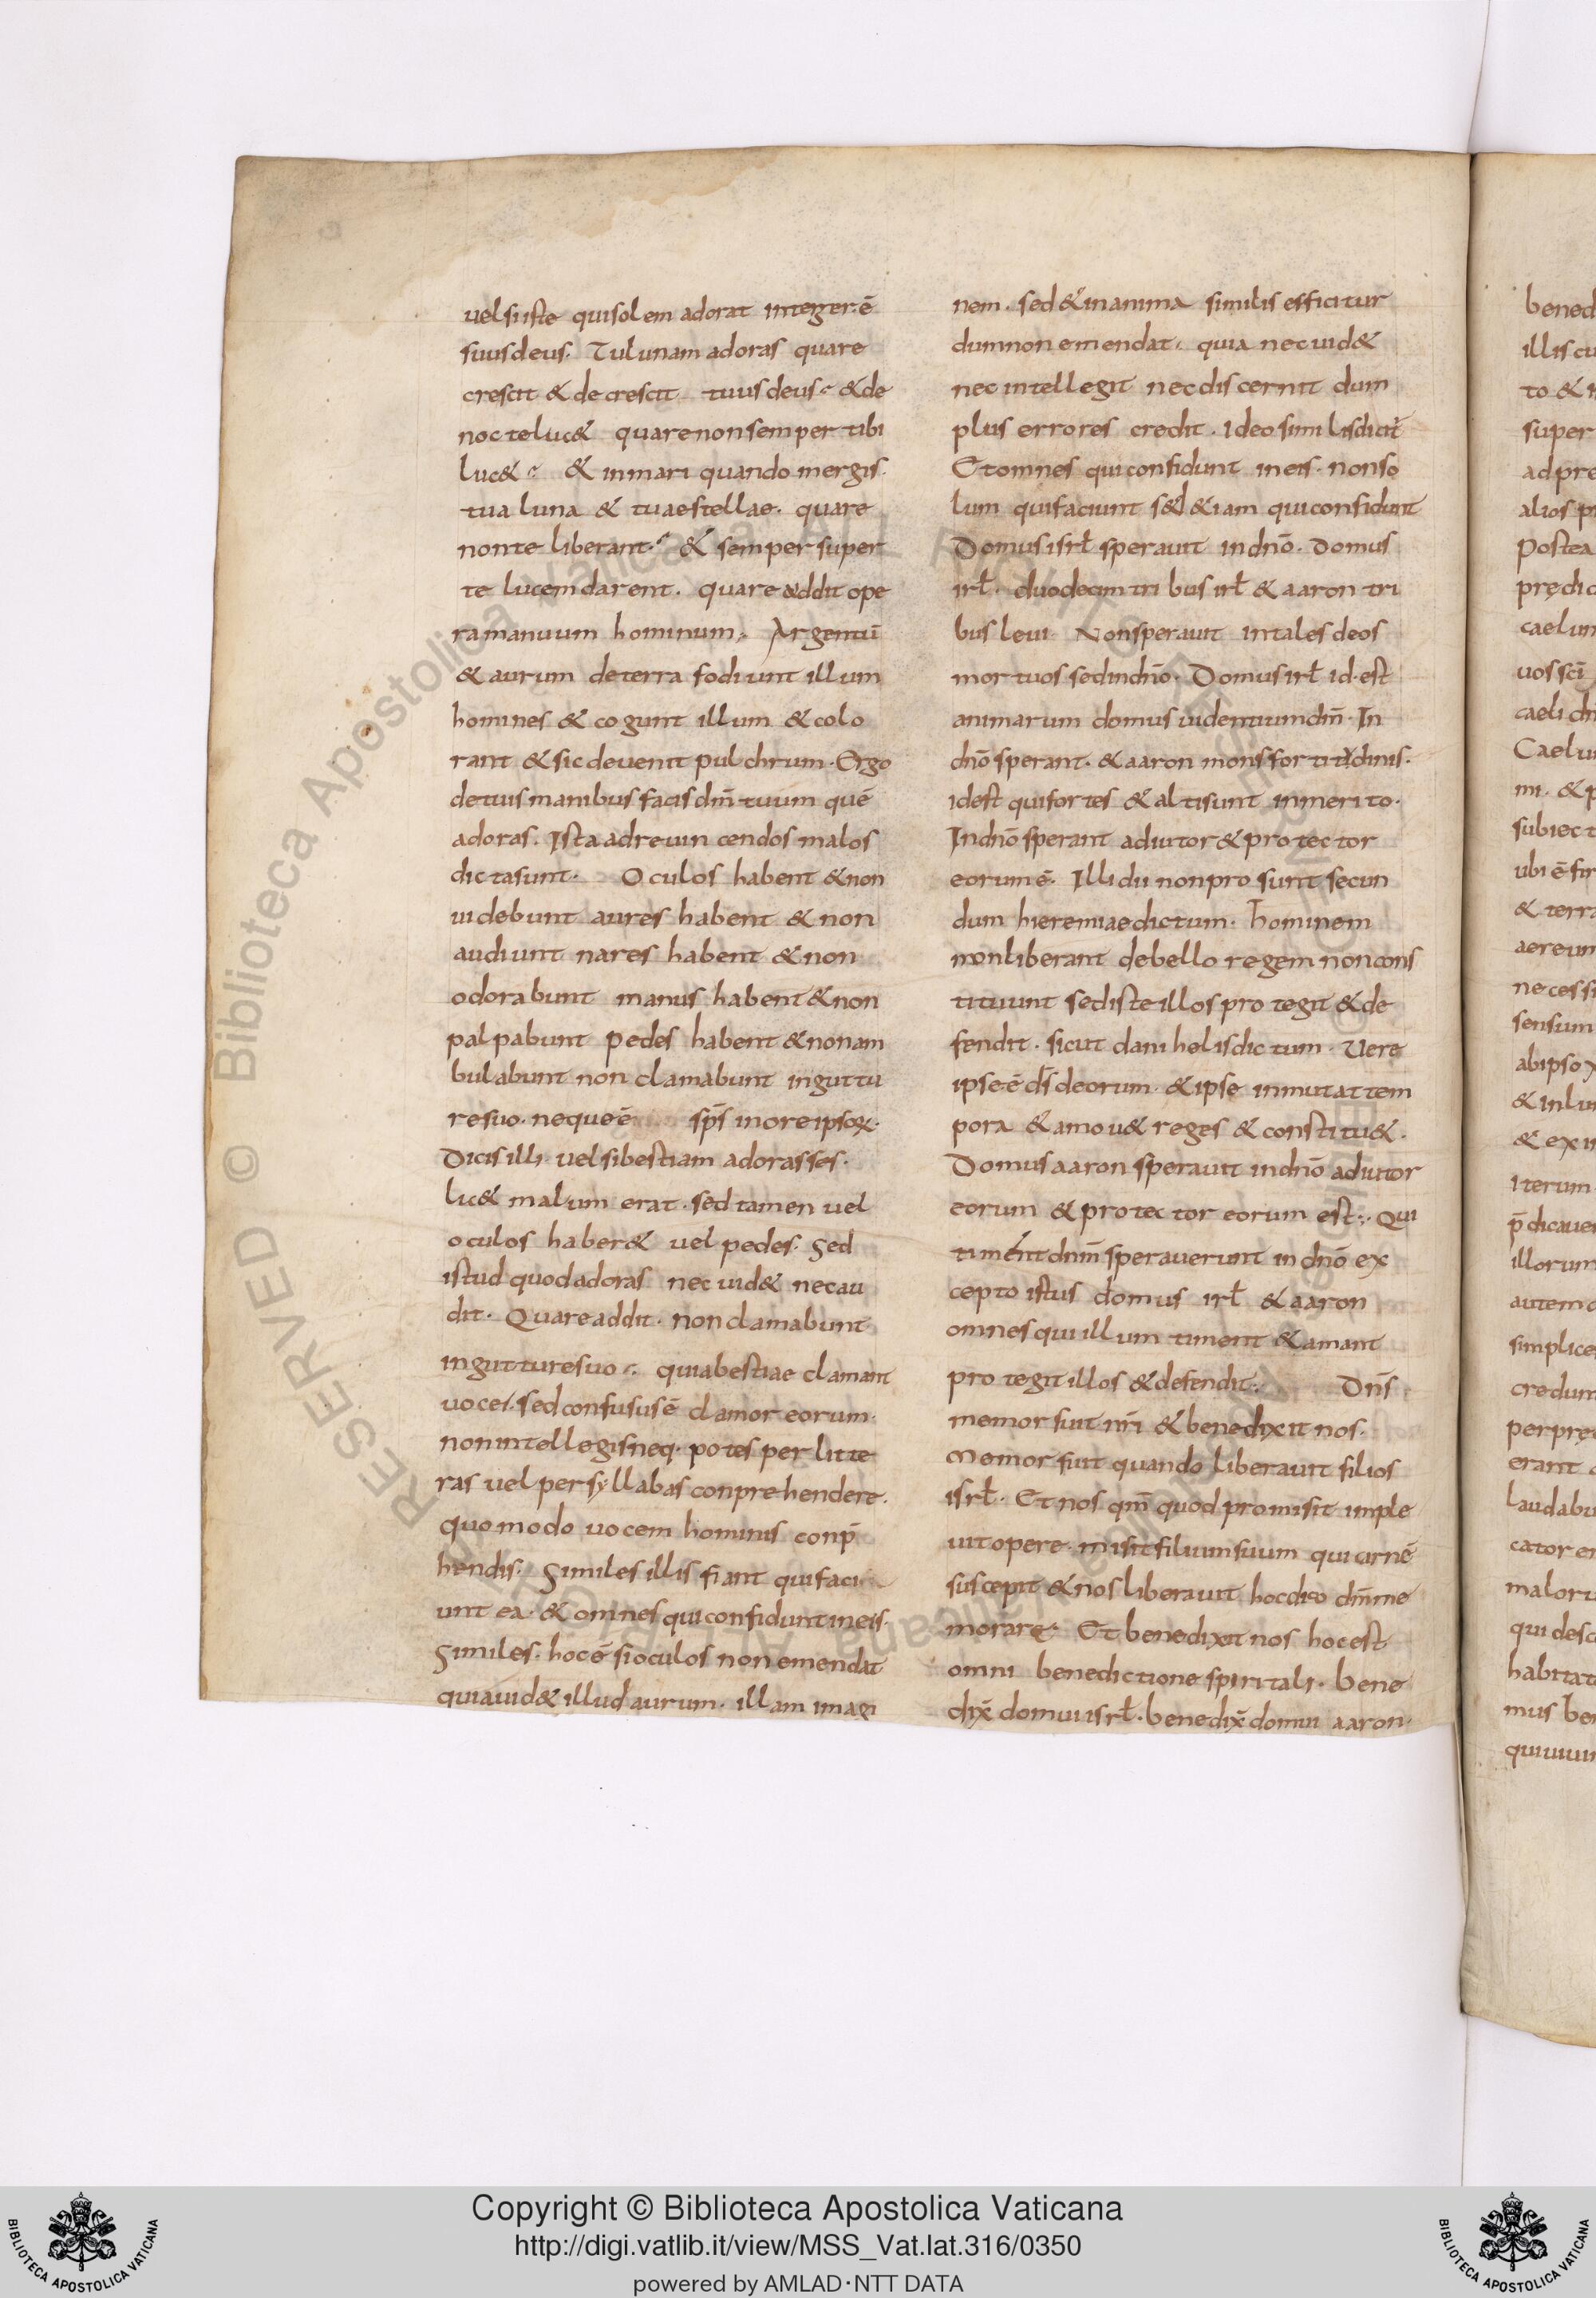 uel si iste qui solem adorat integer. ē
suus deus. Tu lunam adoras quare
crescit & decrescit tuus deus & de
nocte luc& quare non semper tibi
luc& & in mari quando mergis.
tua luna & tuae stellae. quare
non te liberant. & semper super
te lucem darent. quare addit ope
ra manuum hominum. Argentū
& aurum de terra fodiunt illum
homines & cogunt illum & colo
rant & sic deuenit pulchrum. Ergo
de tuis manibus facis dm̄ tuum quē
adoras. Ista ad reuincendos malos
dicta sunt. Oculos habent & non
uidebunt aures habent & non
audiunt nares habent & non
odorabunt manus habent & non
palpabunt pedes habent & non am
bulabunt non clamabunt in guttu
re suo. neque ē sps̄ in ore ipsoꝝ.
Dicis illi. uel si bestiam adorasses.
lic& malum erat. sed tamen uel
oculos haber& uel pedes. Sed
istud quod adoras nec uid& nec au
dit. Quare addit. non clamabunt
in gutture suo. quia bestiae clamant
uoces. sed confusus ē clamor eorum.
non intellegis neq. potes per litte
ras uel per syllabas conprehendere.
quomodo uocem hominis conp̄
hendis. Similes illis fiant qui faci
unt ea. & omnes qui confidunt in eis.
Similes. hoc ē si oculos non emendat
quia uid& illud aurum. illam imagi
nem. sed & in anima similis efficitur
dum non emendat. quia nec uid&
nec intellegit nec discernit dum
plus errores credit. Ideo similis dicit̄
Et omnes qui confidunt in eis. non so
lum qui faciunt s&d &iam qui confidunt
Domus isrł sperauit in dnō. Domus
irł. duodecim tribus irł & aaron tri
bus leui. Non sperauit in tales deos
mortuos sed in dnō. Domus irł id. est
animarum domus uidentium dm̄. In
dnō sperant. & aaron mons fortitudinis.
id est qui fortes & alti sunt in merito.
In dnō sperant adiutor & protector
eorum ē. Illi dii non prosunt secun
dum hieremiae dictum. hominem
non liberant de bello regem non cons
tituunt sed iste illos protegit & de
fendit. sicut danihelis dictum. Uere
ipse ē ds̄ deorum. & ipse inmutat tem
pora & amou& reges & constitu&.
Domus aaron sperauit in dnō adiutor
eorum & protector eorum est. Qui
timent dnm̄ sperauerunt in dnō ex
cepto istius domus irł & aaron
omnes qui illum timent & amant
protegit illos & defendit. Dns̄
memor fuit nr̄i & benedixit nos.
Memor fuit quando liberauit filios
isrł. Et nos qm̄ quod promisit imple
uit opere. misit filium suum qui carnē
suscepit & nos liberauit hoc dico dm̄ me
morare. Et benedixit nos hoc est
omni benedictione spiritali. bene
dix̄ domui isrł. benedix̄ domui aaron.
bened
illis cu
super
ad pre
alios p
Postea
caelum
caeli
Caelu
subiec
& terra
aereum
necessi
sensum
ab ipso
iterum
illorum
autem
simplice
credun
erant
laudabu
cator
maloru
qui desc
habitat
mus
Copyright © Biblioteca Apostolica Vaticana
http://digi.vatlib.it/view/MSS_Vat.lat.316/0350
powered by AMLAD·NTT DATA
BIBLIOTECA APOSTOLICA VATICANA
BIBLIOTECA APOSTOLICA VATICANA